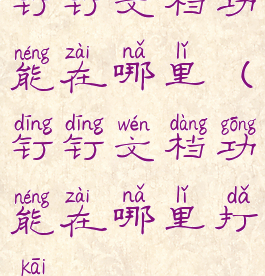 钉钉文档功
néng zài nǎ lǐ
能在哪里(
dīng dīng wén dàng gōng
钉钉文档功
néng zài nǎ lǐ dǎ
能在哪里打
kāi